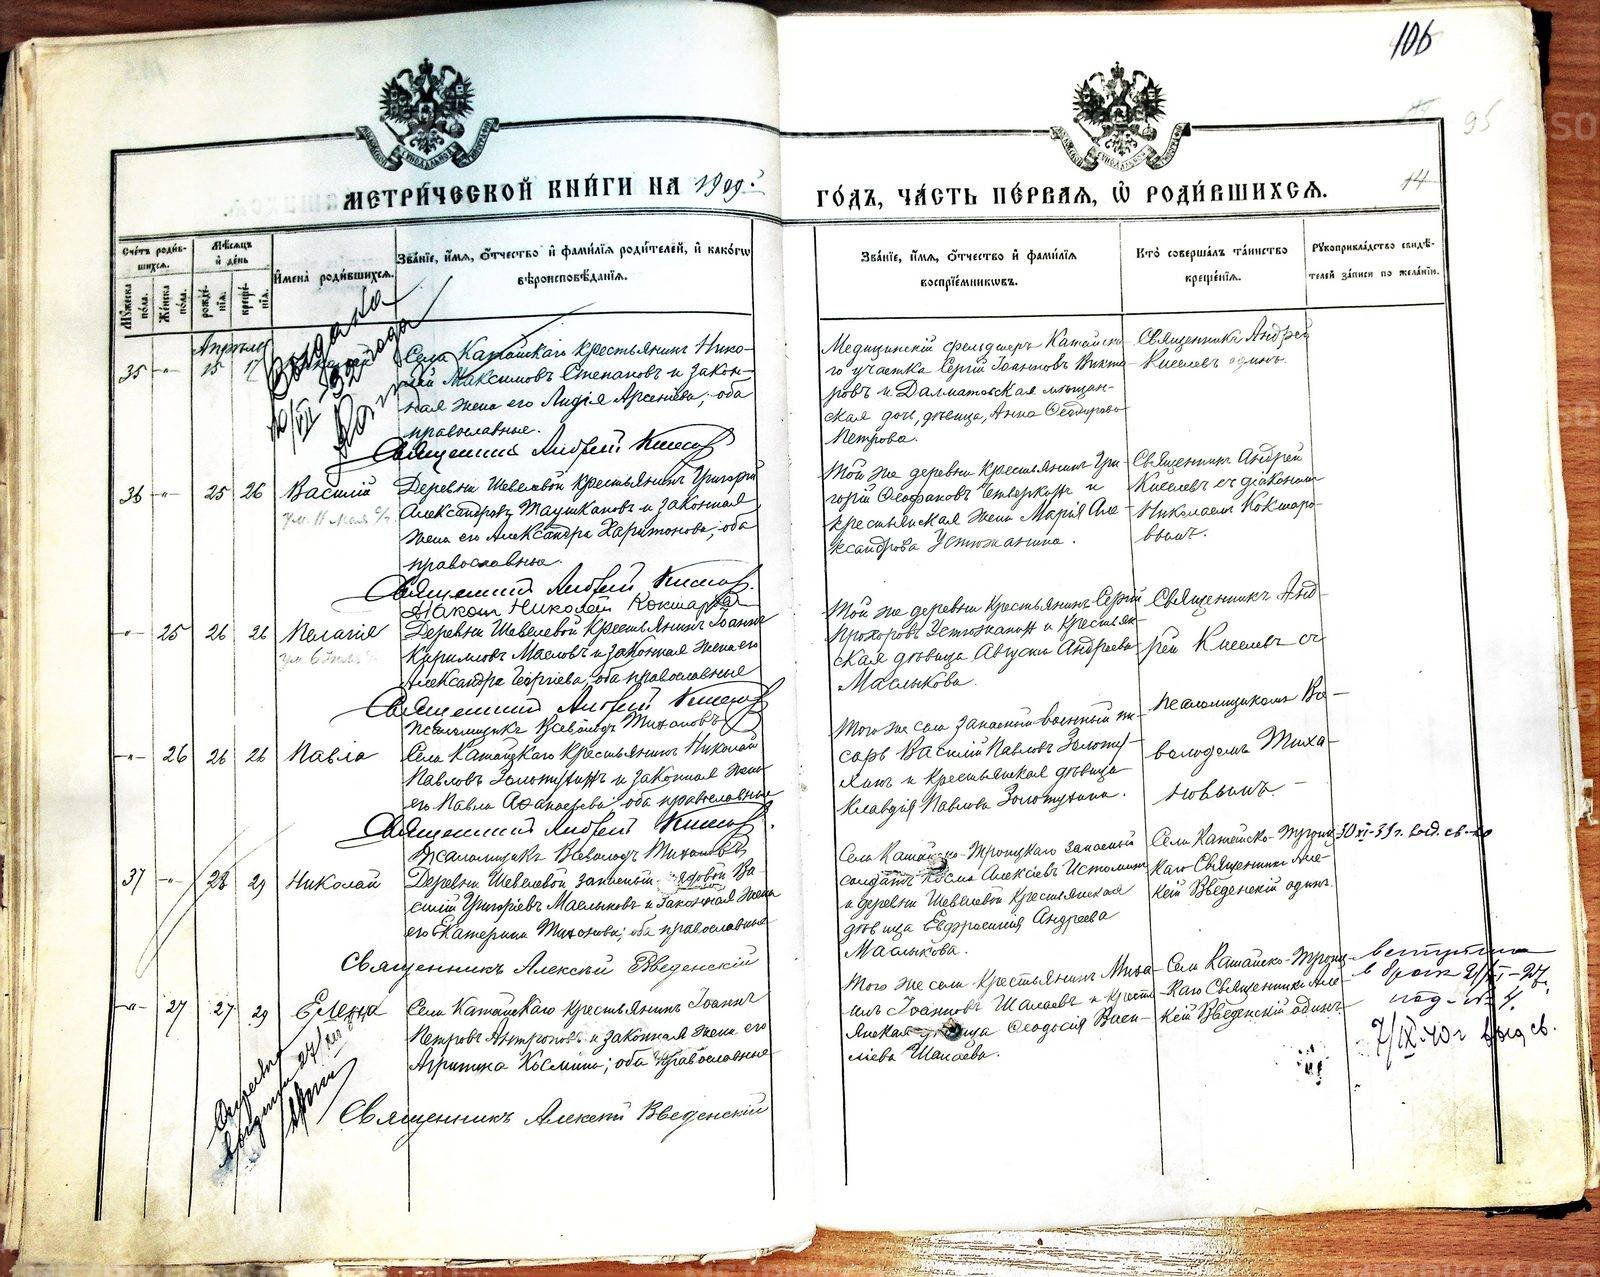 106
95
14
МЕТРИ́ЧЕСКОЙ КНИ́ГИ НА 1909.й
ГО́ДЪ, ЧА́СТЬ ПЕ́РВАЯ, Ѡ҆ РОДИ́ВШИХСѦ.
Сче́тъ роди́в-
шихсѧ.
Мꙋ́жеска по́ла.
Же́нска по́ла.
Мѣ́сѧцъ и҆ де́нь
рожде́-
нїѧ.
креще́-
нїѧ.
И҆мена̀ роди́вшихсѧ.
Зва́нїе, и҆́мѧ, ѻ҆́тчество и҆ фами́лїѧ роди́телей, и҆ како́гѡ
вѣроисповѣ́данїѧ.
Зва́нїе, и҆́мѧ, ѻ҆́тчество и҆ фами́лїѧ
воспрїе́мникѡвъ.
Кто̀ соверша́лъ та́инство
креще́нїѧ.
Рꙋкоприкла́дство свидѣ́-
телей за́писи по жела́нїю.
Апрѣль
35 -"- 15 17
Села Катайскаго крестьянинъ Нико-
лай Максимовъ Степановъ и закон-
ная жена его Лидія Арсеніева; оба
православные.
Священникъ Андрей Киселевъ
Медицинскій фельдшеръ Катайска-
го участка Сергій Іоанновъ Викто-
ровъ и Далматовская мѣщан-
ская дочь, дѣвица, Анна Ѳеодорова
Петрова.
Священникъ Андрей
Киселевъ одинъ.
36 -"- 25 26 Василій
ум. 11 мая
Деревни Шевелевой крестьянинъ Григорій
Александровъ Таушкановъ и законная
жена его Александра Харитонова; оба
православные.
Священникъ Андрей Киселевъ
Діаконъ Николай Кокшаровъ
Той же деревни крестьянинъ Гри-
горій Ѳеофановъ и
крестьянская жена Марія Але-
ксандрова Устюжанина.
Священникъ Андрей
Киселевъ съ діакономъ
Николаемъ Кокшаро-
вымъ.
-"- 25 26 26 Пелагія
Деревни Шевелевой крестьянинъ Іоаннъ
Кирилловъ Масловъ и законная жена его
Александра Георгіева, оба православные
Священникъ Андрей Киселевъ
Псаломщикъ Всеволодъ Тихановъ
Той же деревни крестьянинъ Сергій
Прохоровъ Устюжанинъ и крестьян-
ская дѣвица Августа Андреева
Маслыкова.
Священникъ Анд-
рей Киселевъ съ
псаломщикомъ Все-
володомъ Тиха-
новымъ.
-"- 26 26 26 Павла
Села Катайскаго крестьянинъ Николай
Павловъ Золотухинъ и законная жена
его Павла Аѳанасьева оба православные
Священникъ Андрей Киселевъ.
Псаломщикъ Всеволодъ Тихановъ
Того же села запасный военный пи-
сарь Василій Павловъ Золоту-
хинъ и крестьянская дѣвица
Клавдія Павлова Золотухина.
37 -"- 28 29 Николай
Деревни Шевелевой запасный рядовой Ва-
силій Григоріевъ Маслыковъ и законная жена
его Екатерина Тихонова; оба православные
Священникъ Алексѣй Введенскій
Села Катайско-Троицкаго запасный
солдатъ Косма Алексіевъ Истоминъ
и деревни Шевелевой крестьянская
дѣвица Евфросинія Андреева
Маслыкова.
Села Катайско-Троиц-
каго Священникъ Але-
ксій Введенскій одинъ.
30 XI-39 г. выд. св-во
-"- 27 27 29 Елена
Села Катайскаго крестьянинъ Іоаннъ
Петровъ Антроповъ и законная жена его
Агриппина Космина; оба православные
Священникъ Алексѣй Введенскій
Того же села крестьянинъ Миха-
илъ Іоанновъ Шалаевъ и крестья-
янская дѣвица Ѳеодосія Васи-
ліева Шалаева.
Села Катайско-Троиц-
каго Священникъ Але-
ксій Введенскій одинъ.
вступила
в брак
под № 4.
7/IX-40 г выд св.